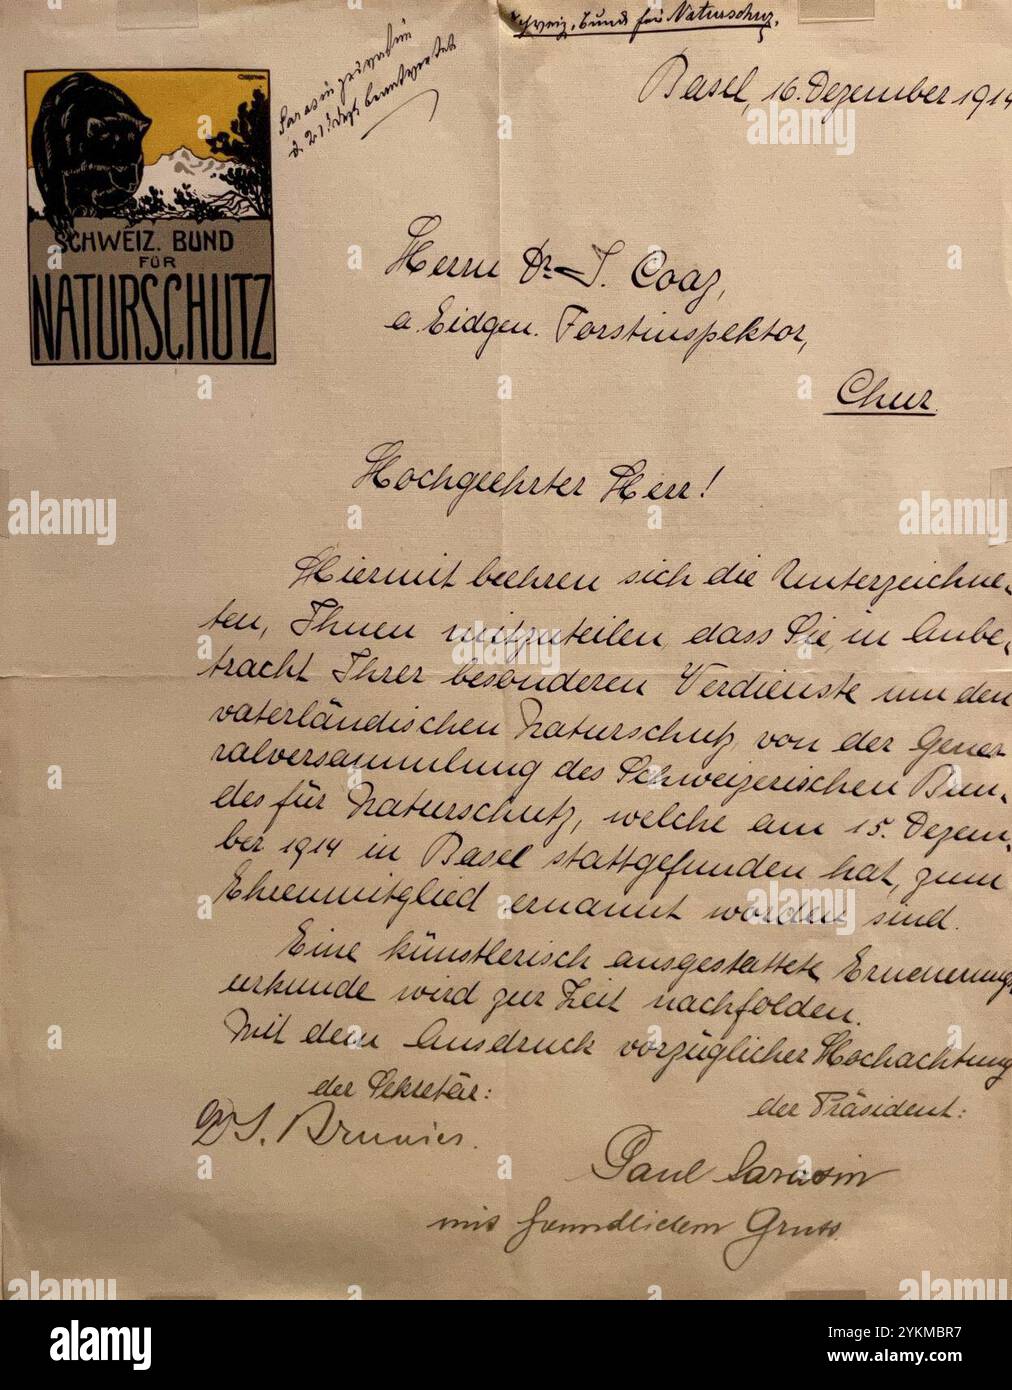 Schweiz. Bund für Naturschuz.
Sarasin privatim
d. 21. Dez. beantwortet
Basel, 16. Dezember 1914
SCHWEIZ. BUND
FÜR
NATURSCHUTZ
Herrn Dr. J. Coaz,
a. Eidgen. Forstinspektor,
Chur.
Hochgeehrter Herr!
Hiermit beehren sich die Unterzeichne-
ten, Ihnen mitzuteilen, dass Sie, in Anbe-
tracht Ihrer besonderen Verdienste um den
vaterländischen Naturschutz, von der Gene-
ralversammlung des Schweizerischen Bun-
des für Naturschutz, welche am 15. Dezem-
ber 1914 in Basel stattgefunden hat, zum
Ehrenmitglied ernannt worden sind.
Eine künstlerisch ausgestattete Ernennungs
urkunde wird zur Zeit nachfolgen.
Mit dem Ausdruck vorzüglicher Hochachtung
der Sekretär:
der Präsident:
Dr S. Brunies.
Paul Sarasin
mit freundlichem Gruss.
alamy
Image ID: 2YKMBR7
www.alamy.com